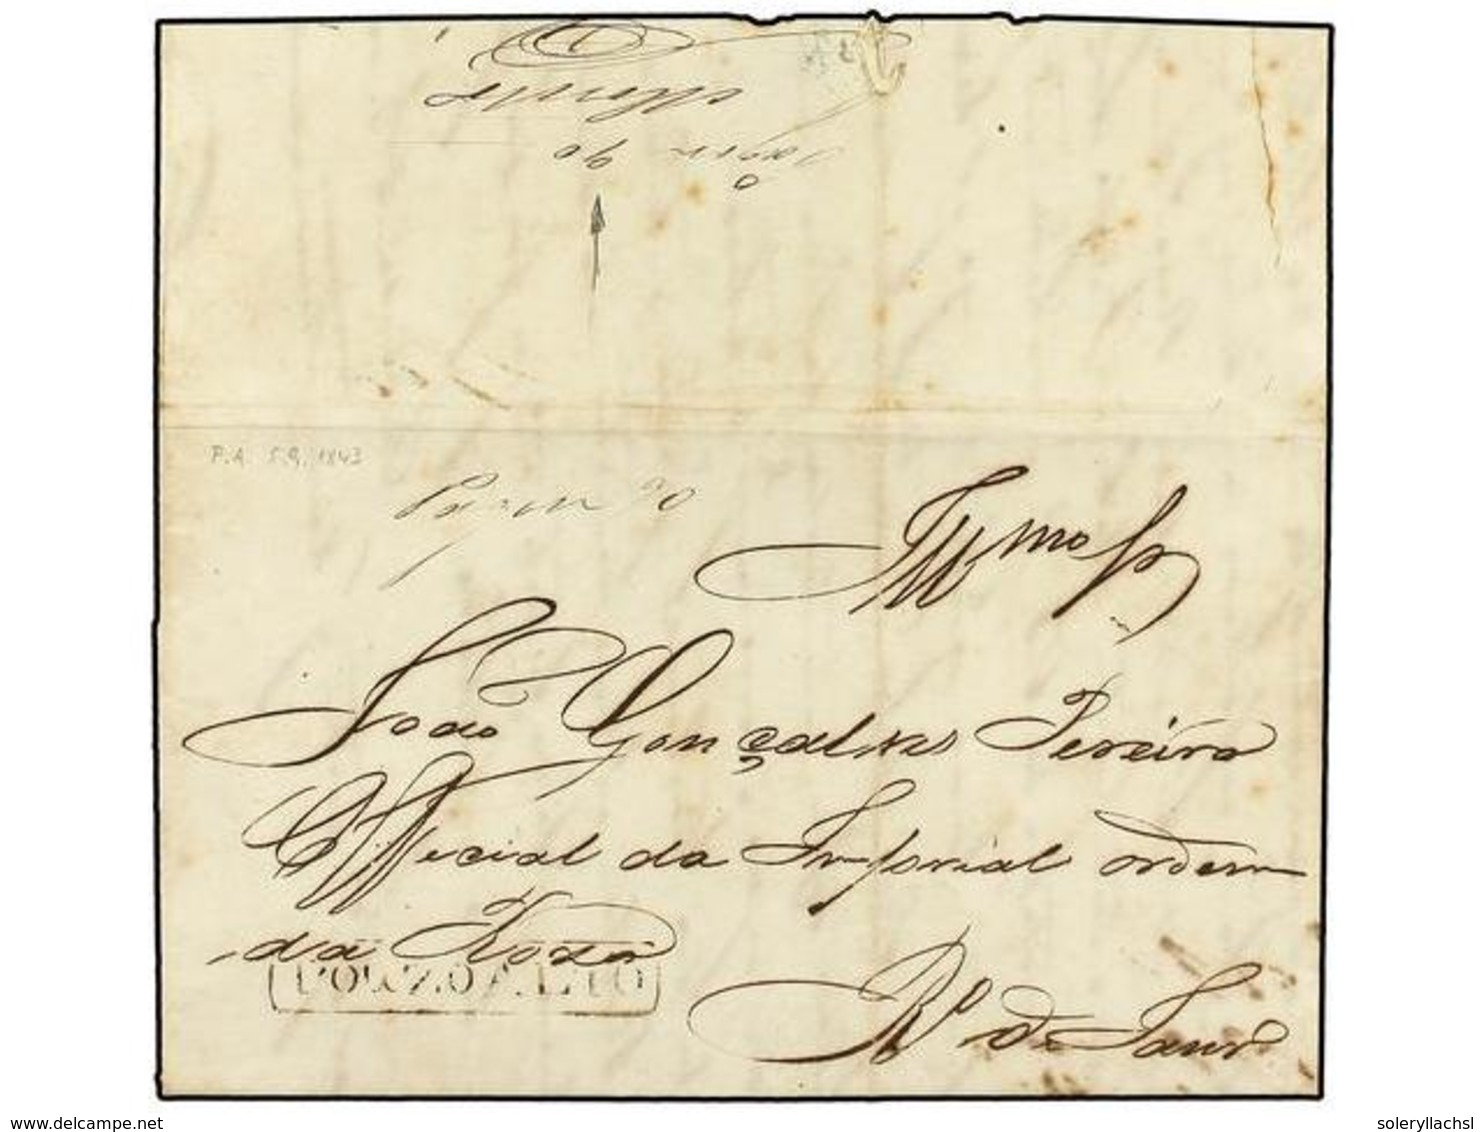 P.A. 5.9.1843
Pagou 90
Illmo Sr
João Gonçalves Pereira
Official da Imperial ordem
da Roza
POUZO ALTO
Rº de Janrº
www.delcampe.net
soleryllachsl